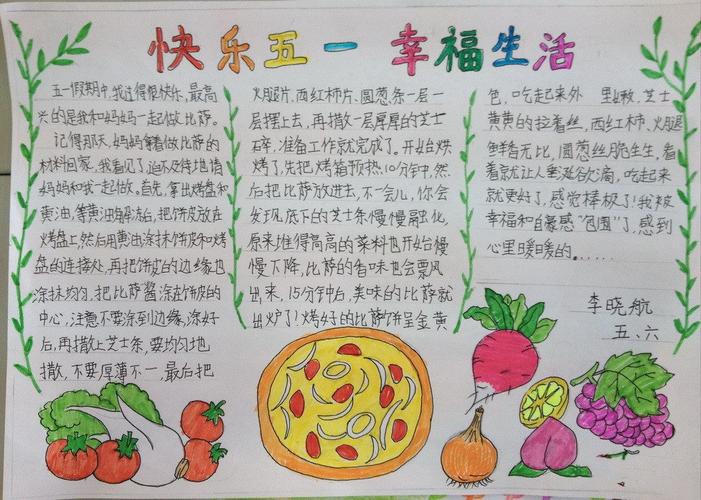 快乐五一 幸福生活
五一假期中,我过得很快乐,最高
兴的是我和妈妈一起做比萨。
记得那天,妈妈拿着做比萨的
材料回家,我看见了,迫不及待地请
妈妈和我一起做。首先,拿出烤盘和
黄油,等黄油解冻后,把饼皮放在
烤盘上,然后用黄油涂抹饼皮和烤
盘的连接处,再把饼皮的边缘也
涂抹均匀,把比萨酱涂在饼皮的
中心,注意不要涂到边缘,涂好
后,再撒上芝士条,要均匀地
撒,不要厚薄不一,最后把
火腿片,西红柿片,圆葱条一层一
层摆上去,再撒一层厚厚的芝士
碎,准备工作就完成了。开始烘
烤了,先把烤箱预热10分钟,然
后把比萨放进去,不一会儿,你会
发现底下的芝士条慢慢融化,
原来堆得高高的菜料也开始慢
慢下降,比萨的香味也会飘
出来,15分钟后,美味的比萨就
出炉了!烤好的比萨饼呈金黄
色,吃起来外 里嫩,芝士
黄黄的拉着丝,西红柿、火腿
鲜香无比,圆葱丝脆生生,看
着就让人垂涎欲滴,吃起来
就更好了,感觉棒极了!我被
幸福和自豪感“包围”了,感到
心里暖暖的......
李晓航
五、六